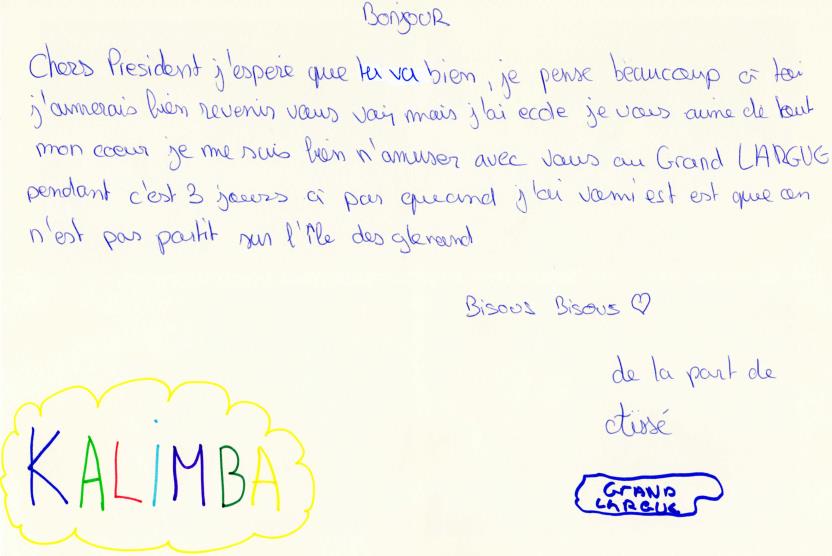 BonjouR
Chers President j'espere que tu va bien, je pense beaucoup a toi
j'aimerais bien revenir vous voir mais j'ai ecole je vous aime de tout
mon cœur je me suis bien n'amuser avec vous au Grand LARGUE
pendant c'est 3 jours a par quand j'ai vomi est est que on
n'est pas partit sur l'île des glenand
Bisous Bisous ♡
de la part de
KALiMBA
GRAND
LARGUE